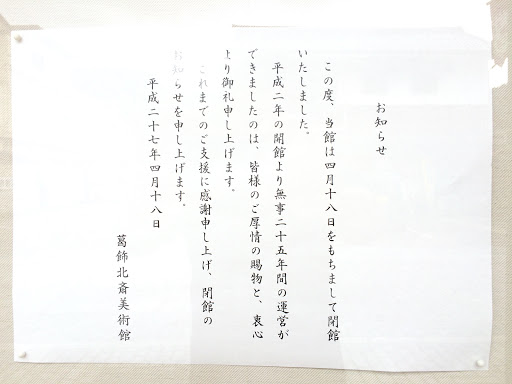 お知らせ
この度、当館は四月十八日をもちまして閉館
いたしました。
平成二年の開館より無事二十五年間の運営が
できましたのは、皆様のご厚情の賜物と、衷心
より御礼申し上げます。
これまでのご支援に感謝申し上げ、閉館の
お知らせを申し上げます。
平成二十七年四月十八日
葛飾北斎美術館